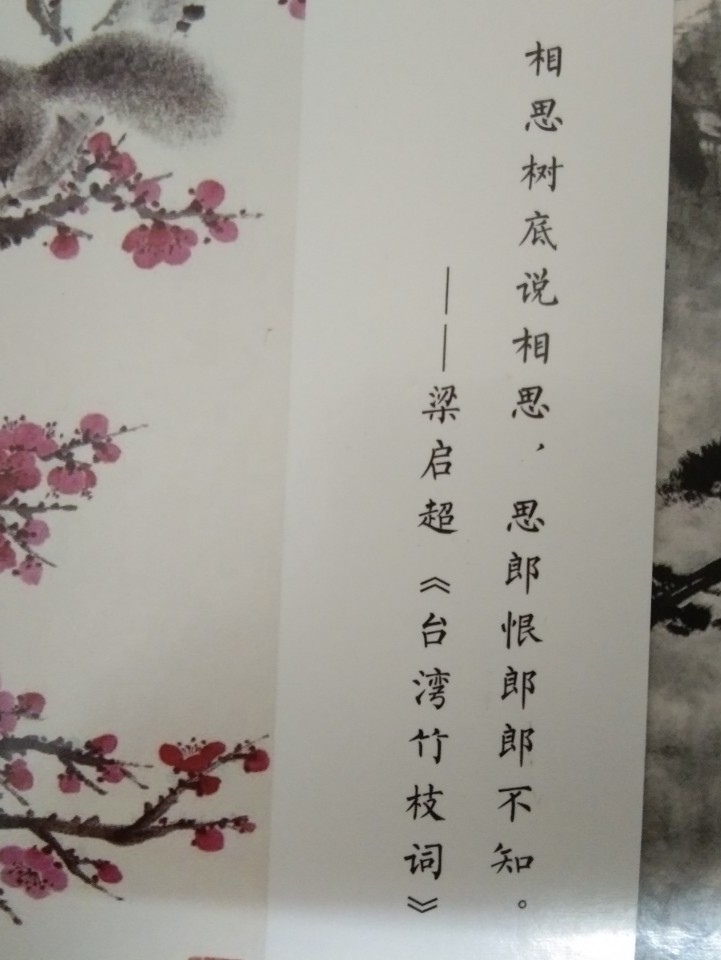 相思树底说相思，思郎恨郎郎不知。
——梁启超《台湾竹枝词》